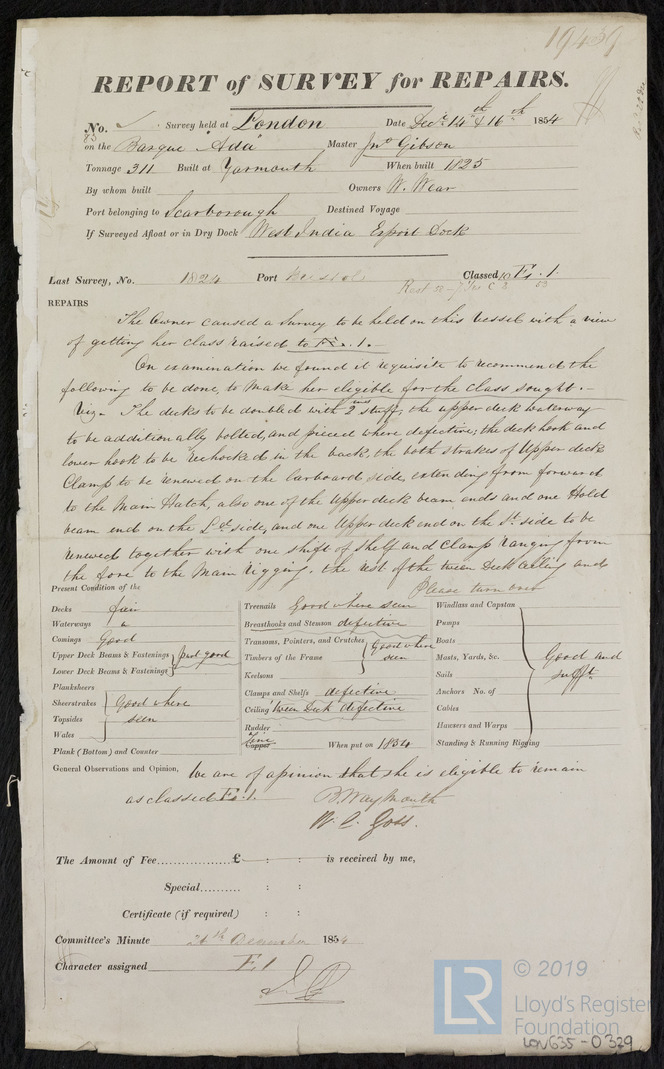 REPORT of SURVEY for REPAIRS.
No. Survey held at London Date Decr. 14th & 16th 1854
on the Barque "Ada" Master Jno Gibson
Tonnage 311 Built at Yarmouth When built 1825
By whom built Owners W. Wear
Port belonging to Scarborough Destined Voyage
If Surveyed Afloat or in Dry Dock West India Export Dock
Last Survey, No. 1824 Port Classed Æ 1.
REPAIRS
The Owner caused a Survey to be held on this Vessel with a view
of getting her class raised to Æ 1. —
On examination we found it requisite to recommend the
following to be done, to make her eligible for the class sought. —
Viz - The decks to be doubled with 2 ins stuff, the upper deck waterway
to be additionally bolted, and pieced where defective; the deck hook and
lower hook to be rechocked in the back, the both strakes of Upper deck
Clamp to be renewed on the larboard side, extending from forward
to the Main Hatch, also one of the Upper deck beam ends and one Hold
beam end on the Ld side, and one Upper deck end on the St. side to be
renewed together with one shift of Shelf and Clamp ranging from
the fore to the Main Rigging. the rest of the tween Deck Ceiling and
Please turn over
Present Condition of the
Decks fair
Waterways "
Comings Good
Upper Deck Beams & Fastenings
Lower Deck Beams & Fastenings
part good
Planksheers
Sheerstrakes
Topsides
Wales
Good where
seen
Plank (Bottom) and Counter
Treenails Good where seen
Breasthooks and Stemson defective
Transoms, Pointers, and Crutches
Timbers of the Frame
Good where
seen
Keelsons
Clamps and Shelfs defective
Ceiling Tween Deck defective
Rudder
Zinc
Copper When put on 1854
Windlass and Capstan
Pumps
Boats
Masts, Yards, &c.
Sails
Anchors No. of
Cables
Hawsers and Warps
Standing & Running Rigging
Good and
sufft.
General Observations and Opinion, We are of opinion that she is eligible to remain
as classed Æ 1.
B. Waymouth
W. C. Goss.
The Amount of Fee............... £ : : is received by me,
Special.......... : :
Certificate (if required) : :
Committee's Minute 26th December 1854
Character assigned Æ 1
LR
© 2019
Lloyd's Register
Foundation
LON635-0329